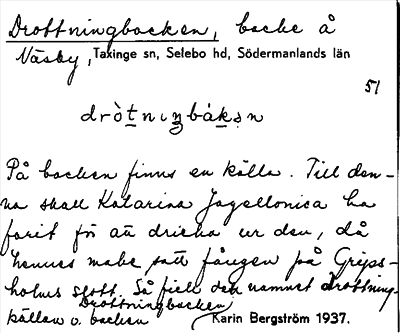 Drottningbacken, backe å
Näsby, Taxinge sn, Selebo hd, Södermanlands län
51
drò̀tnıŋbákən
På backen finns en källa. Till den-
na skall Katarina Jagellonica ha
farit för att dricka ur den, då
hennes make satt fången på Grips-
holms slott. Så fick den namnet drottning-
källan o. backen Drottningbacken
Karin Bergström 1937.